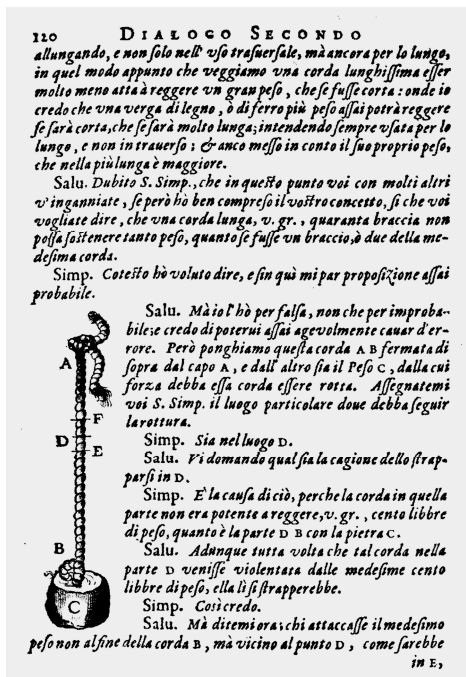 120 DIALOGO SECONDO
allungando, e non ſolo nell' vſo traſuerſale, mà ancora per lo lungo,
in quel modo appunto che veggiamo vna corda lunghiſſima eſſer
molto meno atta à reggere vn gran peſo, che ſe fuſſe corta: onde io
credo che vna verga di legno, ò di ferro più peſo aſſai potrà reggere
ſe ſarà corta, che ſe ſarà molto lunga; intendendo ſempre vſata per lo
lungo, e non in trauerſo; & anco meſſo in conto il ſuo proprio peſo,
che nella più lunga è maggiore.
Salu. Dubito S. Simp., che in queſto punto voi con molti altri
v'inganniate, ſe però hò ben compreſo il voſtro concetto, ſi che voi
vogliate dire, che vna corda lunga, v. gr., quaranta braccia non
poſſa ſoſtenere tanto peſo, quanto ſe fuſſe vn braccio, ò due della me-
deſima corda.
Simp. Coteſto hò voluto dire, e ſin quì mi par propoſizione aſſai
probabile.
Salu. Mà io l'hò per falſa, non che per improba-
bile; e credo di poterui aſſai ageuolmente cauar d'er-
rore. Però ponghiamo queſta corda A B fermata di
ſopra dal capo A, e dall'altro ſia il Peſo C, dalla cui
forza debba eſſa corda eſſere rotta. Aſſegnatemi
voi S. Simp. il luogo particolare doue debba ſeguir
la rottura.
Simp. Sia nel luogo D.
Salu. Vi domando qual ſia la cagione dello ſtrap-
parſi in D.
Simp. E' la cauſa di ciò, perche la corda in quella
parte non era potente a reggere, v. gr., cento libbre
di peſo, quanto è la parte D B con la pietra C.
Salu. Adunque tutta volta che tal corda nella
parte D veniſſe violentata dalle medeſime cento
libbre di peſo, ella lì ſi ſtrapperebbe.
Simp. Così credo.
Salu. Mà ditemi ora; chi attaccaſſe il medeſimo
peſo non al fine della corda B, mà vicino al punto D, come ſarebbe
in E,
A
F
D
E
B
C